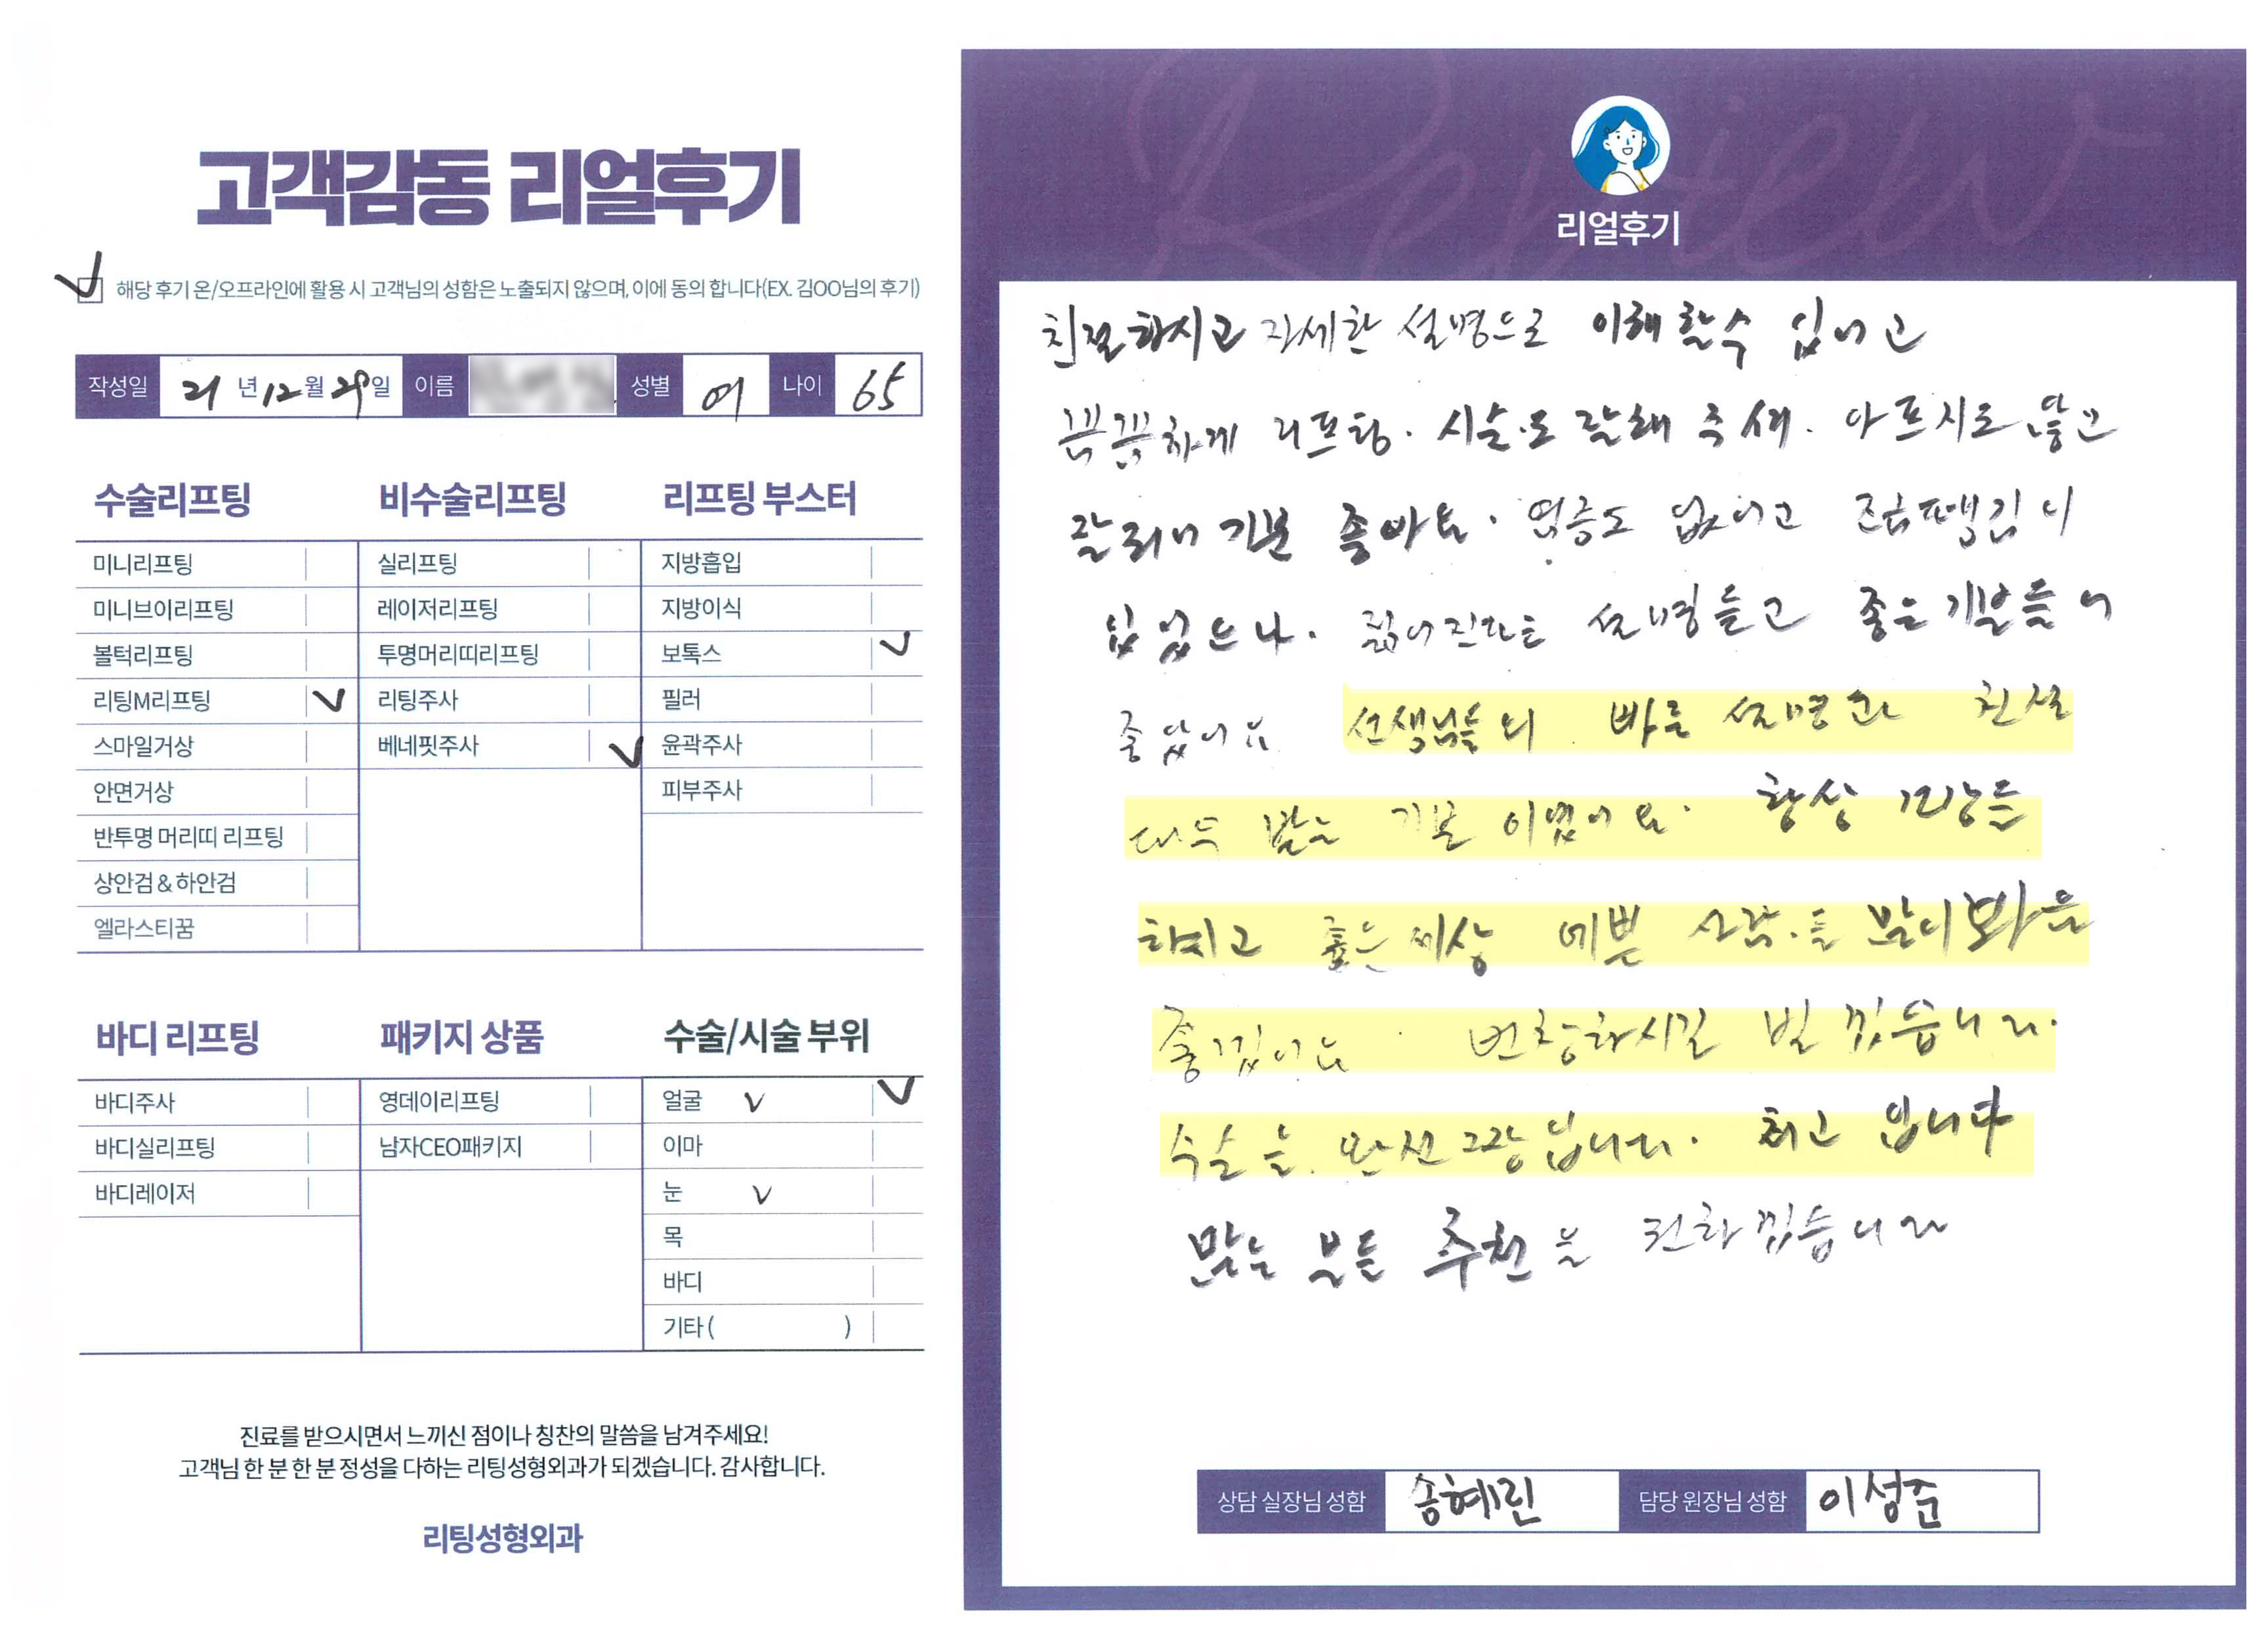 고객감동 리얼후기
해당 후기 온/오프라인에 활용 시 고객님의 성함은 노출되지 않으며, 이에 동의 합니다(EX. 김OO님의 후기)
작성일 21 년 12 월 29 일 이름 성별 여 나이 65
수술리프팅
미니리프팅
미니브이리프팅
볼턱리프팅
리팅M리프팅
스마일거상
안면거상
반투명 머리띠 리프팅
상안검 & 하안검
엘라스티꿈
비수술리프팅
실리프팅
레이저리프팅
투명머리띠리프팅
리팅주사
베네핏주사
리프팅 부스터
지방흡입
지방이식
보톡스
필러
윤곽주사
피부주사
바디 리프팅
바디주사
바디실리프팅
바디레이저
패키지 상품
영데이리프팅
남자CEO패키지
수술/시술 부위
얼굴
이마
눈
목
바디
기타 ( )
진료를 받으시면서 느끼신 점이나 칭찬의 말씀을 남겨주세요!
고객님 한 분 한 분 정성을 다하는 리팅성형외과가 되겠습니다. 감사합니다.
리팅성형외과
Review
리얼후기
친절하시고 자세한 설명으로 이해할수 있어고
꼼꼼하게 리프팅. 시술도 잘해 주셔. 아프지도 않고
잘되어 기분 좋아요. 염증도 없어고 조금땡김이
있었으나. 젊어진다는 설명듣고 좋은기분들어
좋았어요 선생님들의 빠른 설명과 친절
대우 받는 기분 이였어요. 항상 건강들
하시고 좋은세상 예쁜 사람들 많이봐을
좋겠어요 번창하시길 빌겠습니다.
수술은 완전 고장입니다. 최고 입니다
많은 분들 추천을 전하겠습니다
상담 실장님 성함 송혜린 담당 원장님 성함 이성준